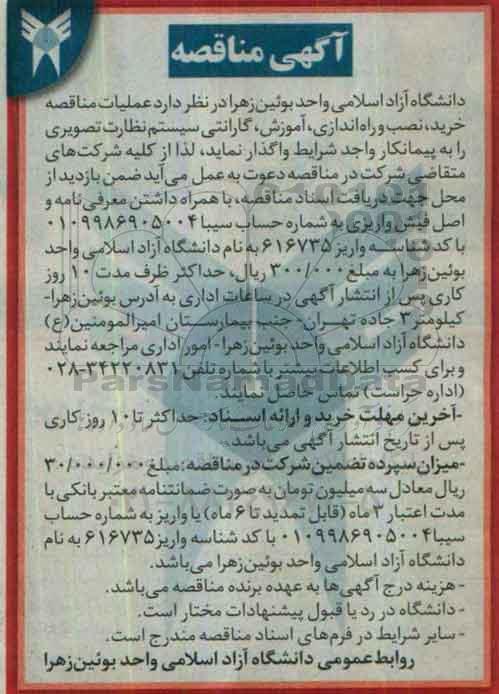 آگهی مناقصه
دانشگاه آزاد اسلامی واحد بوئین‌زهرا در نظر دارد عملیات مناقصه
خرید، نصب و راه‌اندازی، آموزش، گارانتی سیستم نظارت تصویری
را به پیمانکار واجد شرایط واگذار نماید، لذا از کلیه شرکت‌های
متقاضی شرکت در مناقصه دعوت به عمل می‌آید ضمن بازدید از
محل جهت دریافت اسناد مناقصه، با همراه داشتن معرفی‌نامه و
اصل فیش واریزی به شماره حساب سیبا ۰۱۰۹۹۸۶۹۰۵۰۰۴
با کد شناسه واریز ۶۱۶۷۳۵ به نام دانشگاه آزاد اسلامی واحد
بوئین‌زهرا به مبلغ ۳۰۰/۰۰۰ ریال، حداکثر ظرف مدت ۱۰ روز
کاری پس از انتشار آگهی در ساعات اداری به آدرس بوئین‌زهرا-
کیلومتر ۳ جاده تهران- جنب بیمارستان امیرالمومنین(ع)
دانشگاه آزاد اسلامی واحد بوئین‌زهرا- امور اداری مراجعه نمایند
و برای کسب اطلاعات بیشتر با شماره تلفن ۳۴۲۲۰۸۳۱-۰۲۸
ParsNamadData
(اداره حراست) تماس حاصل نمایند.
-آخرین مهلت خرید و ارائه اسناد: حداکثر تا ۱۰ روز کاری
پس از تاریخ انتشار آگهی می‌باشد.
-میزان سپرده تضمین شرکت در مناقصه: مبلغ ۳۰/۰۰۰/۰۰۰
ریال معادل سه میلیون تومان به صورت ضمانتنامه معتبر بانکی با
مدت اعتبار ۳ ماه (قابل تمدید تا ۶ ماه) یا واریز به شماره حساب
سیبا ۰۱۰۹۹۸۶۹۰۵۰۰۴ با کد شناسه واریز ۶۱۶۷۳۵ به نام
دانشگاه آزاد اسلامی واحد بوئین‌زهرا می‌باشد.
- هزینه درج آگهی‌ها به عهده برنده مناقصه می‌باشد.
- دانشگاه در رد یا قبول پیشنهادات مختار است.
- سایر شرایط در فرم‌های اسناد مناقصه مندرج است.
روابط عمومی دانشگاه آزاد اسلامی واحد بوئین‌زهرا